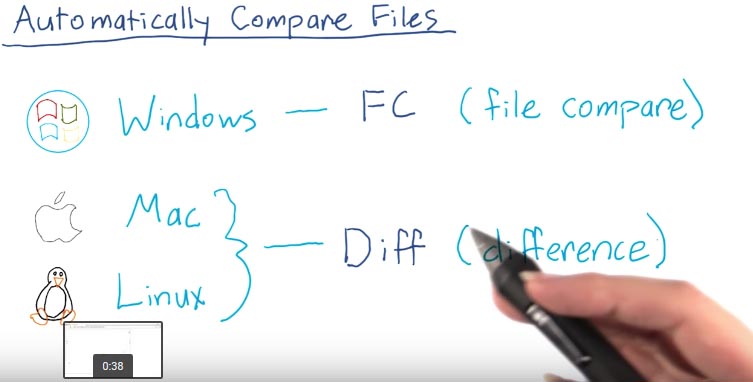 Automatically Compare Files
Windows — FC (file compare)
Mac
Linux
} — Diff (difference)
0:38